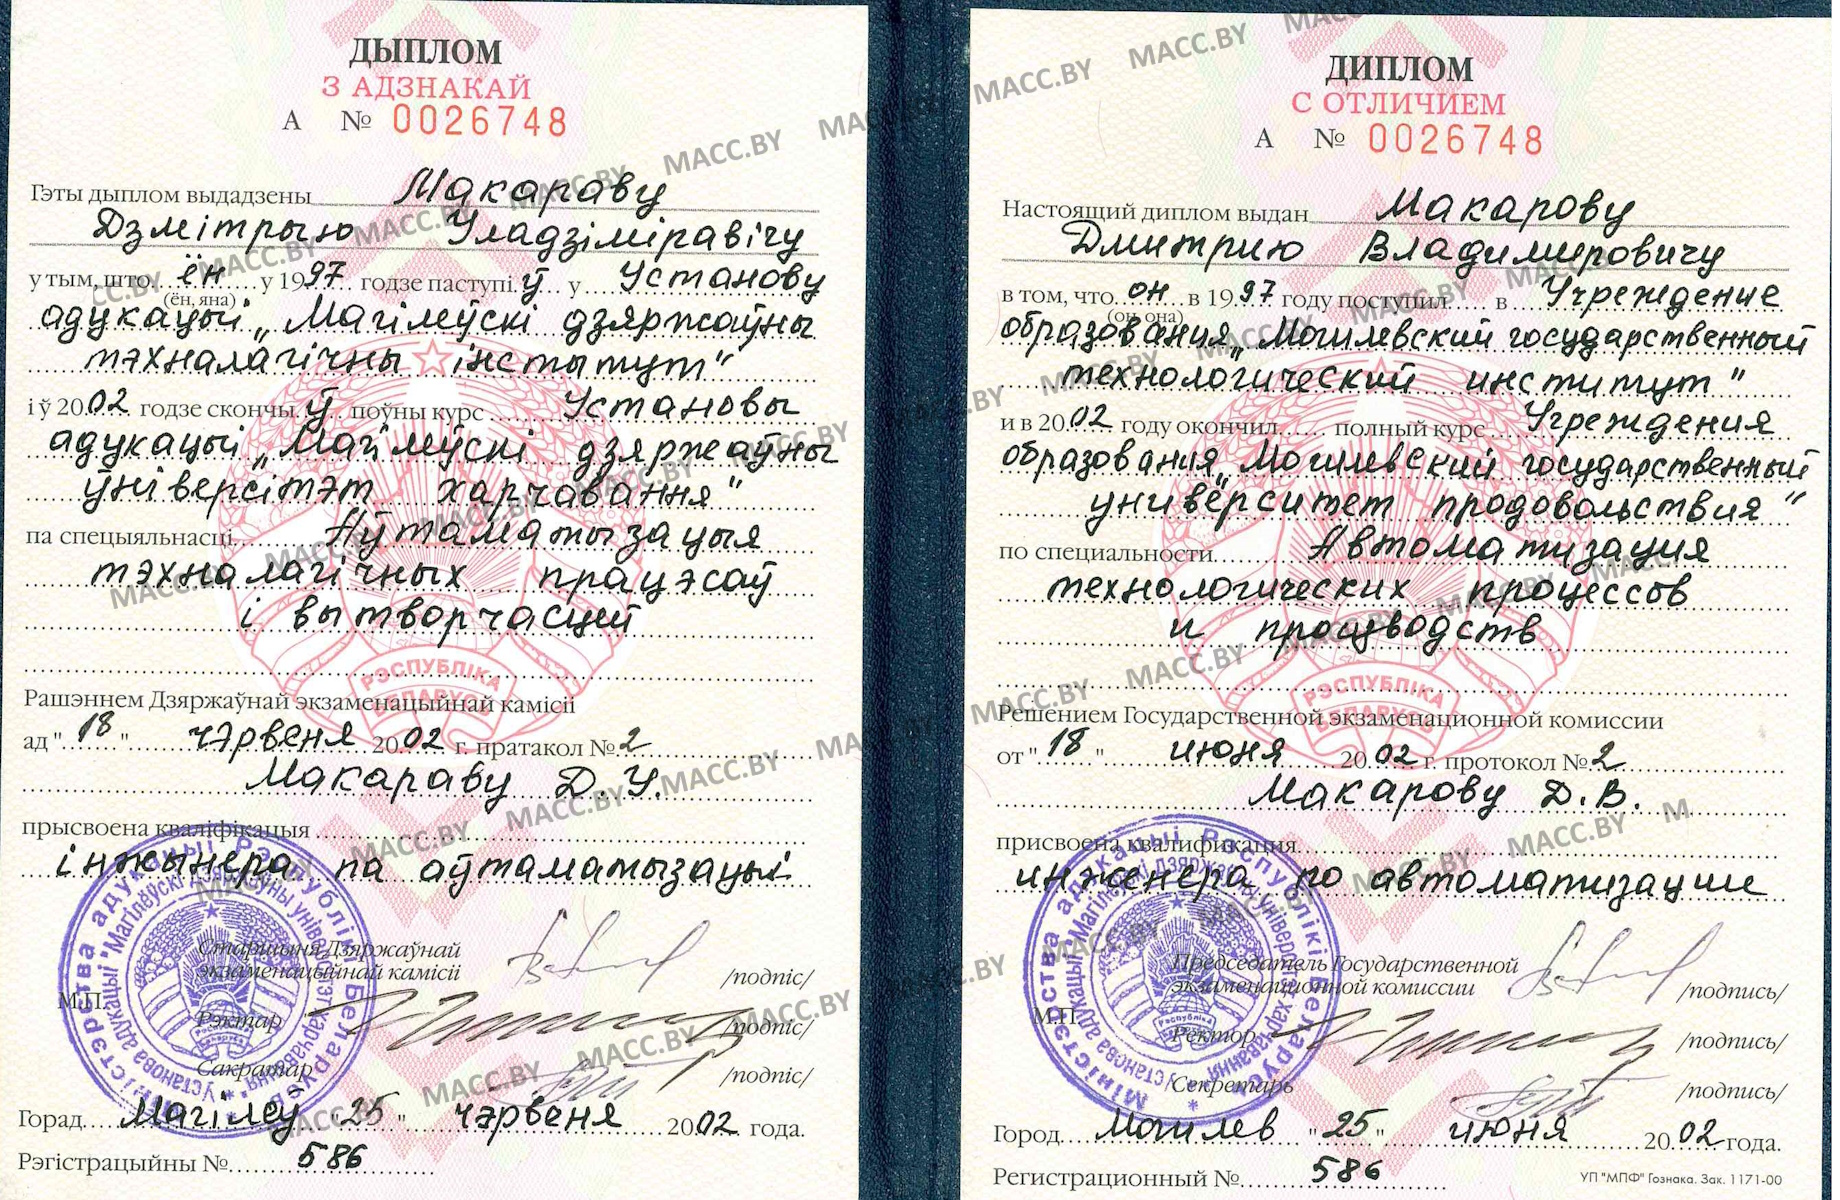 ДЫПЛОМ
З АДЗНАКАЙ
А № 0026748
Гэты дыплом выдадзены Макараву
Дзмітрыю Уладзіміравічу
у тым, што ён у 1997 годзе паступіў у Установу
(ён, яна)
адукацыі „Магілёўскі дзяржаўны
тэхналагічны інстытут"
і ў 2002 годзе скончыў поўны курс Установы
адукацыі „Магілёўскі дзяржаўны
ўніверсітэт харчавання"
па спецыяльнасці Аўтаматызацыя
тэхналагічных працэсаў
і вытворчасцей
РЭСПУБЛІКА
БЕЛАРУСЬ
Рашэннем Дзяржаўнай экзаменацыйнай камісіі
ад "18" чэрвеня 2002 г. пратакол № 2
Макараву Д.У.
прысвоена кваліфікацыя
інжынера па аўтаматызацыі
Старшыня Дзяржаўнай
экзаменацыйнай камісіі /подпіс/
М.П.
Рэктар /подпіс/
Сакратар /подпіс/
Міністэрства адукацыі Рэспублікі Беларусь
Установа адукацыі "Магілёўскі дзяржаўны ўніверсітэт харчавання"
Горад Магілёў "25" чэрвеня 2002 года.
Рэгістрацыйны № 586
ДИПЛОМ
С ОТЛИЧИЕМ
А № 0026748
Настоящий диплом выдан Макарову
Дмитрию Владимировичу
в том, что он в 1997 году поступил в Учреждение
(он, она)
образования „Могилевский государственный
технологический институт"
и в 2002 году окончил полный курс Учреждения
образования „Могилевский государственный
университет продовольствия"
по специальности Автоматизация
технологических процессов
и производств
РЭСПУБЛІКА
БЕЛАРУСЬ
Решением Государственной экзаменационной комиссии
от "18" июня 2002 г. протокол № 2
Макарову Д.В.
присвоена квалификация
инженера по автоматизации
Председатель Государственной
экзаменационной комиссии /подпись/
М.П.
Ректор /подпись/
Секретарь /подпись/
Міністэрства адукацыі Рэспублікі Беларусь
Установа адукацыі "Магілёўскі дзяржаўны ўніверсітэт харчавання"
Город Могилев "25" июня 2002 года.
Регистрационный № 586
УП "МПФ" Гознака. Зак. 1171-00
MACC.BY